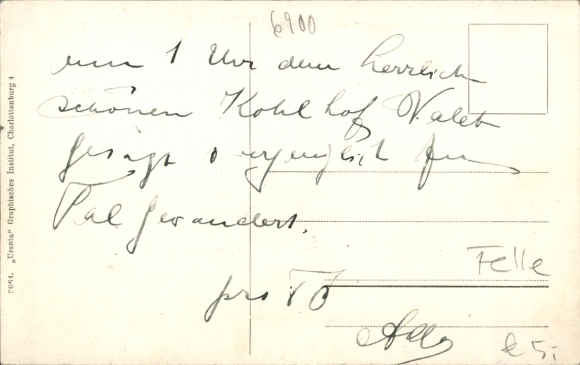 6900
um 1 Uhr dem herrlich
schönen Kohlhof Valet
gesagt
Tal gewandert.
pro
Felle
5,-
7084. „Urania" Graphisches Institut, Charlottenburg 1